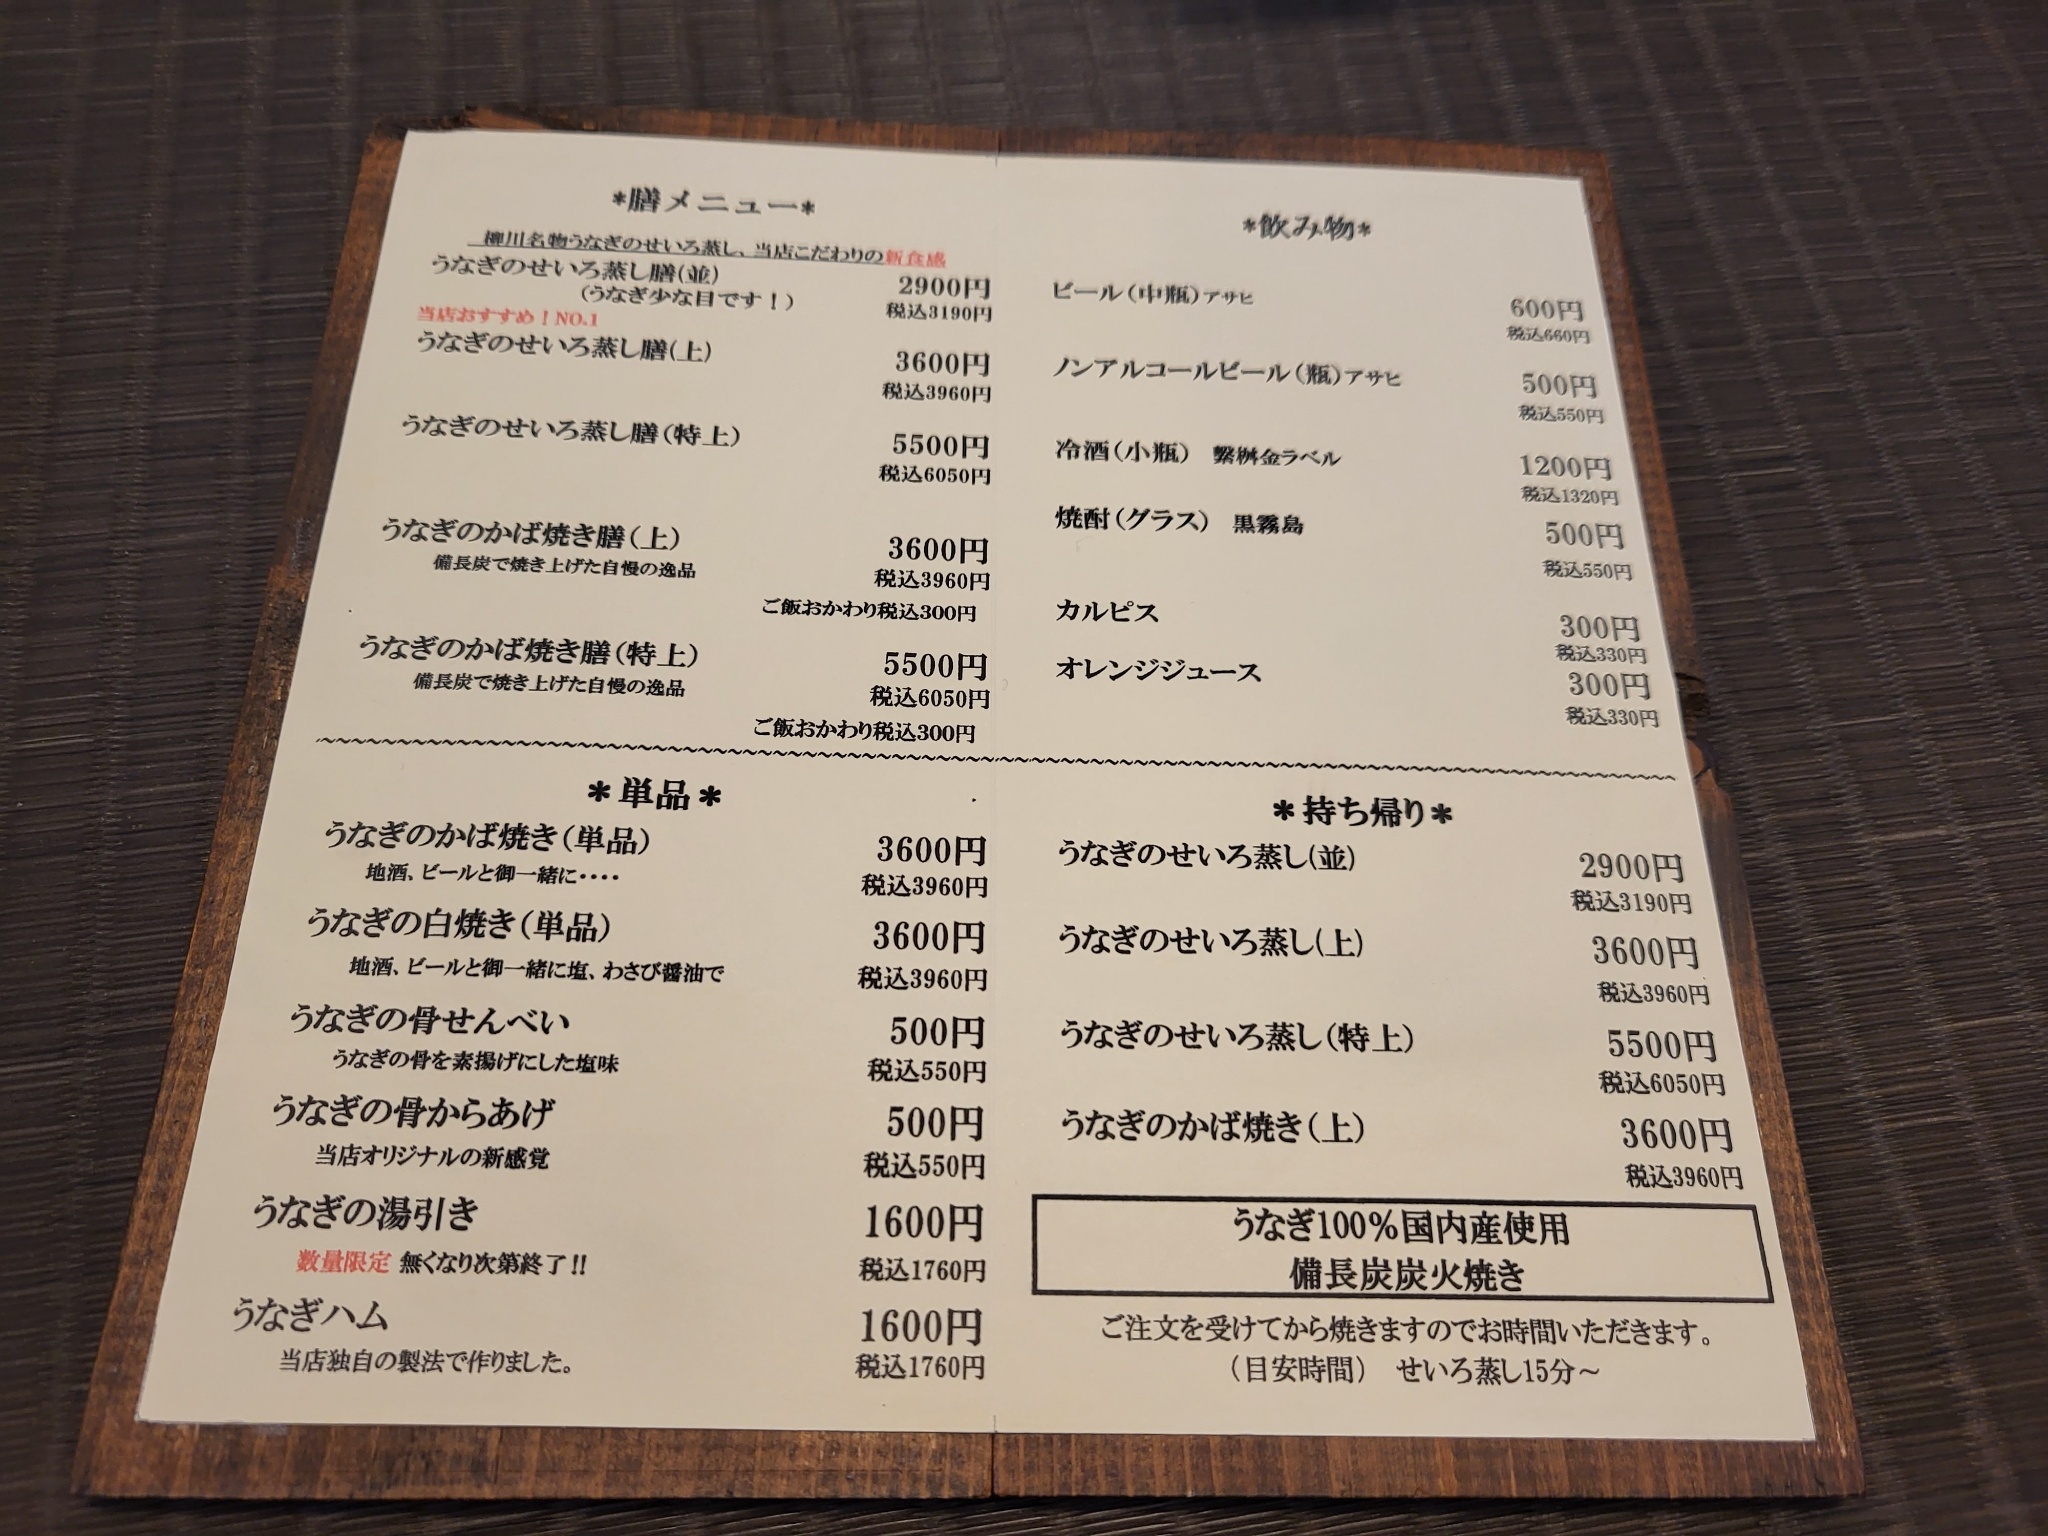 *膳メニュー*
柳川名物うなぎのせいろ蒸し、当店こだわりの新食感
うなぎのせいろ蒸し膳(並) 2900円
(うなぎ少な目です！) 税込3190円
当店おすすめ！NO.1
うなぎのせいろ蒸し膳(上) 3600円
税込3960円
うなぎのせいろ蒸し膳(特上) 5500円
税込6050円
うなぎのかば焼き膳(上) 3600円
備長炭で焼き上げた自慢の逸品 税込3960円
ご飯おかわり税込300円
うなぎのかば焼き膳(特上) 5500円
備長炭で焼き上げた自慢の逸品 税込6050円
ご飯おかわり税込300円
*飲み物*
ビール(中瓶)アサヒ 600円
税込660円
ノンアルコールビール(瓶)アサヒ 500円
税込550円
冷酒(小瓶) 繋桝金ラベル 1200円
税込1320円
焼酎(グラス) 黒霧島 500円
税込550円
カルピス 300円
税込330円
オレンジジュース 300円
税込330円
*単品*
うなぎのかば焼き(単品) 3600円
地酒、ビールと御一緒に・・・・ 税込3960円
うなぎの白焼き(単品) 3600円
地酒、ビールと御一緒に塩、わさび醤油で 税込3960円
うなぎの骨せんべい 500円
うなぎの骨を素揚げにした塩味 税込550円
うなぎの骨からあげ 500円
当店オリジナルの新感覚 税込550円
うなぎの湯引き 1600円
数量限定 無くなり次第終了!! 税込1760円
うなぎハム 1600円
当店独自の製法で作りました。 税込1760円
*持ち帰り*
うなぎのせいろ蒸し(並) 2900円
税込3190円
うなぎのせいろ蒸し(上) 3600円
税込3960円
うなぎのせいろ蒸し(特上) 5500円
税込6050円
うなぎのかば焼き(上) 3600円
税込3960円
うなぎ100%国内産使用
備長炭炭火焼き
ご注文を受けてから焼きますのでお時間いただきます。
(目安時間) せいろ蒸し15分～